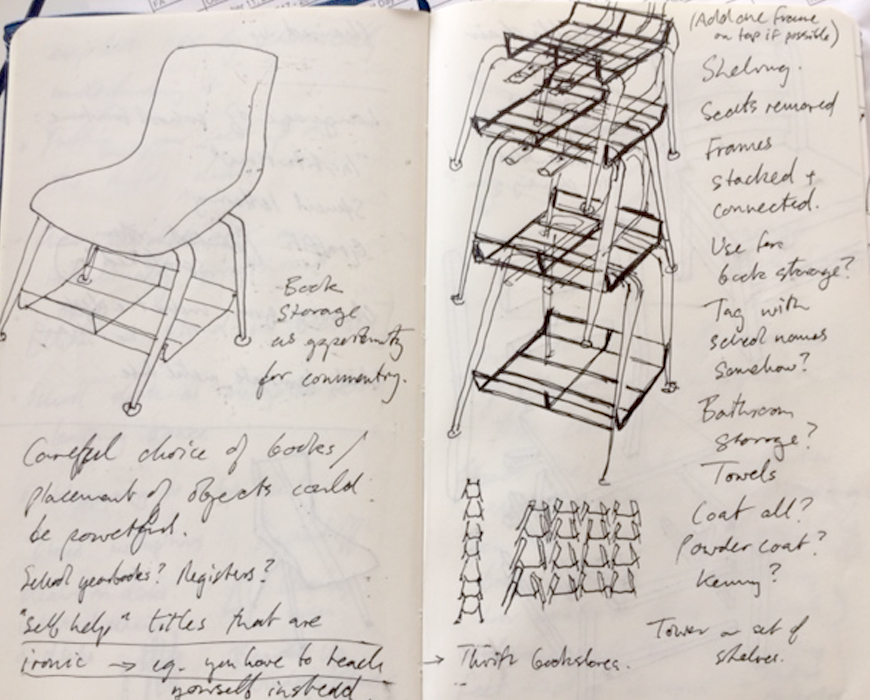 Book
Storage
as opportunity
for commentry.
Careful choice of books/
placement of objects could
be powerful.
School yearbooks? Registers?
"Self help" titles that are
ironic → eg. you have to teach
yourself instead.
(Add one frame
on top if possible)
Shelving.
Seats removed
Frames
stacked +
connected.
Use for
book storage?
Tag with
school names
somehow?
Bathroom
storage?
Towels
Coat all?
Powder coat?
Kenny?
Tower or set of
shelves.
→ Thrift bookstores.